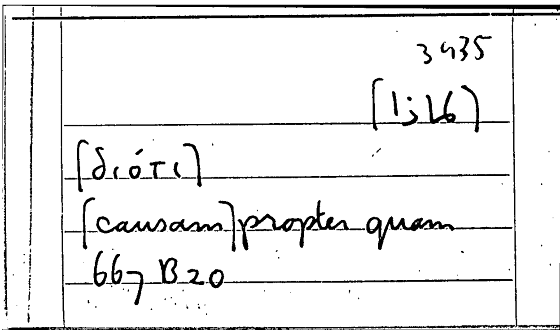 3435
[لماذا]
[διότι]
[causam] propter quam
667 B20